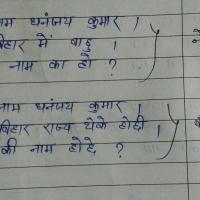 नाम धनंजय कुमार ।
बिहार में बाढ़ ।
नाम का हो ?
नाम धनंजय कुमार ।
बिहार राज्य येके होदी ।
की नाम होदे ?